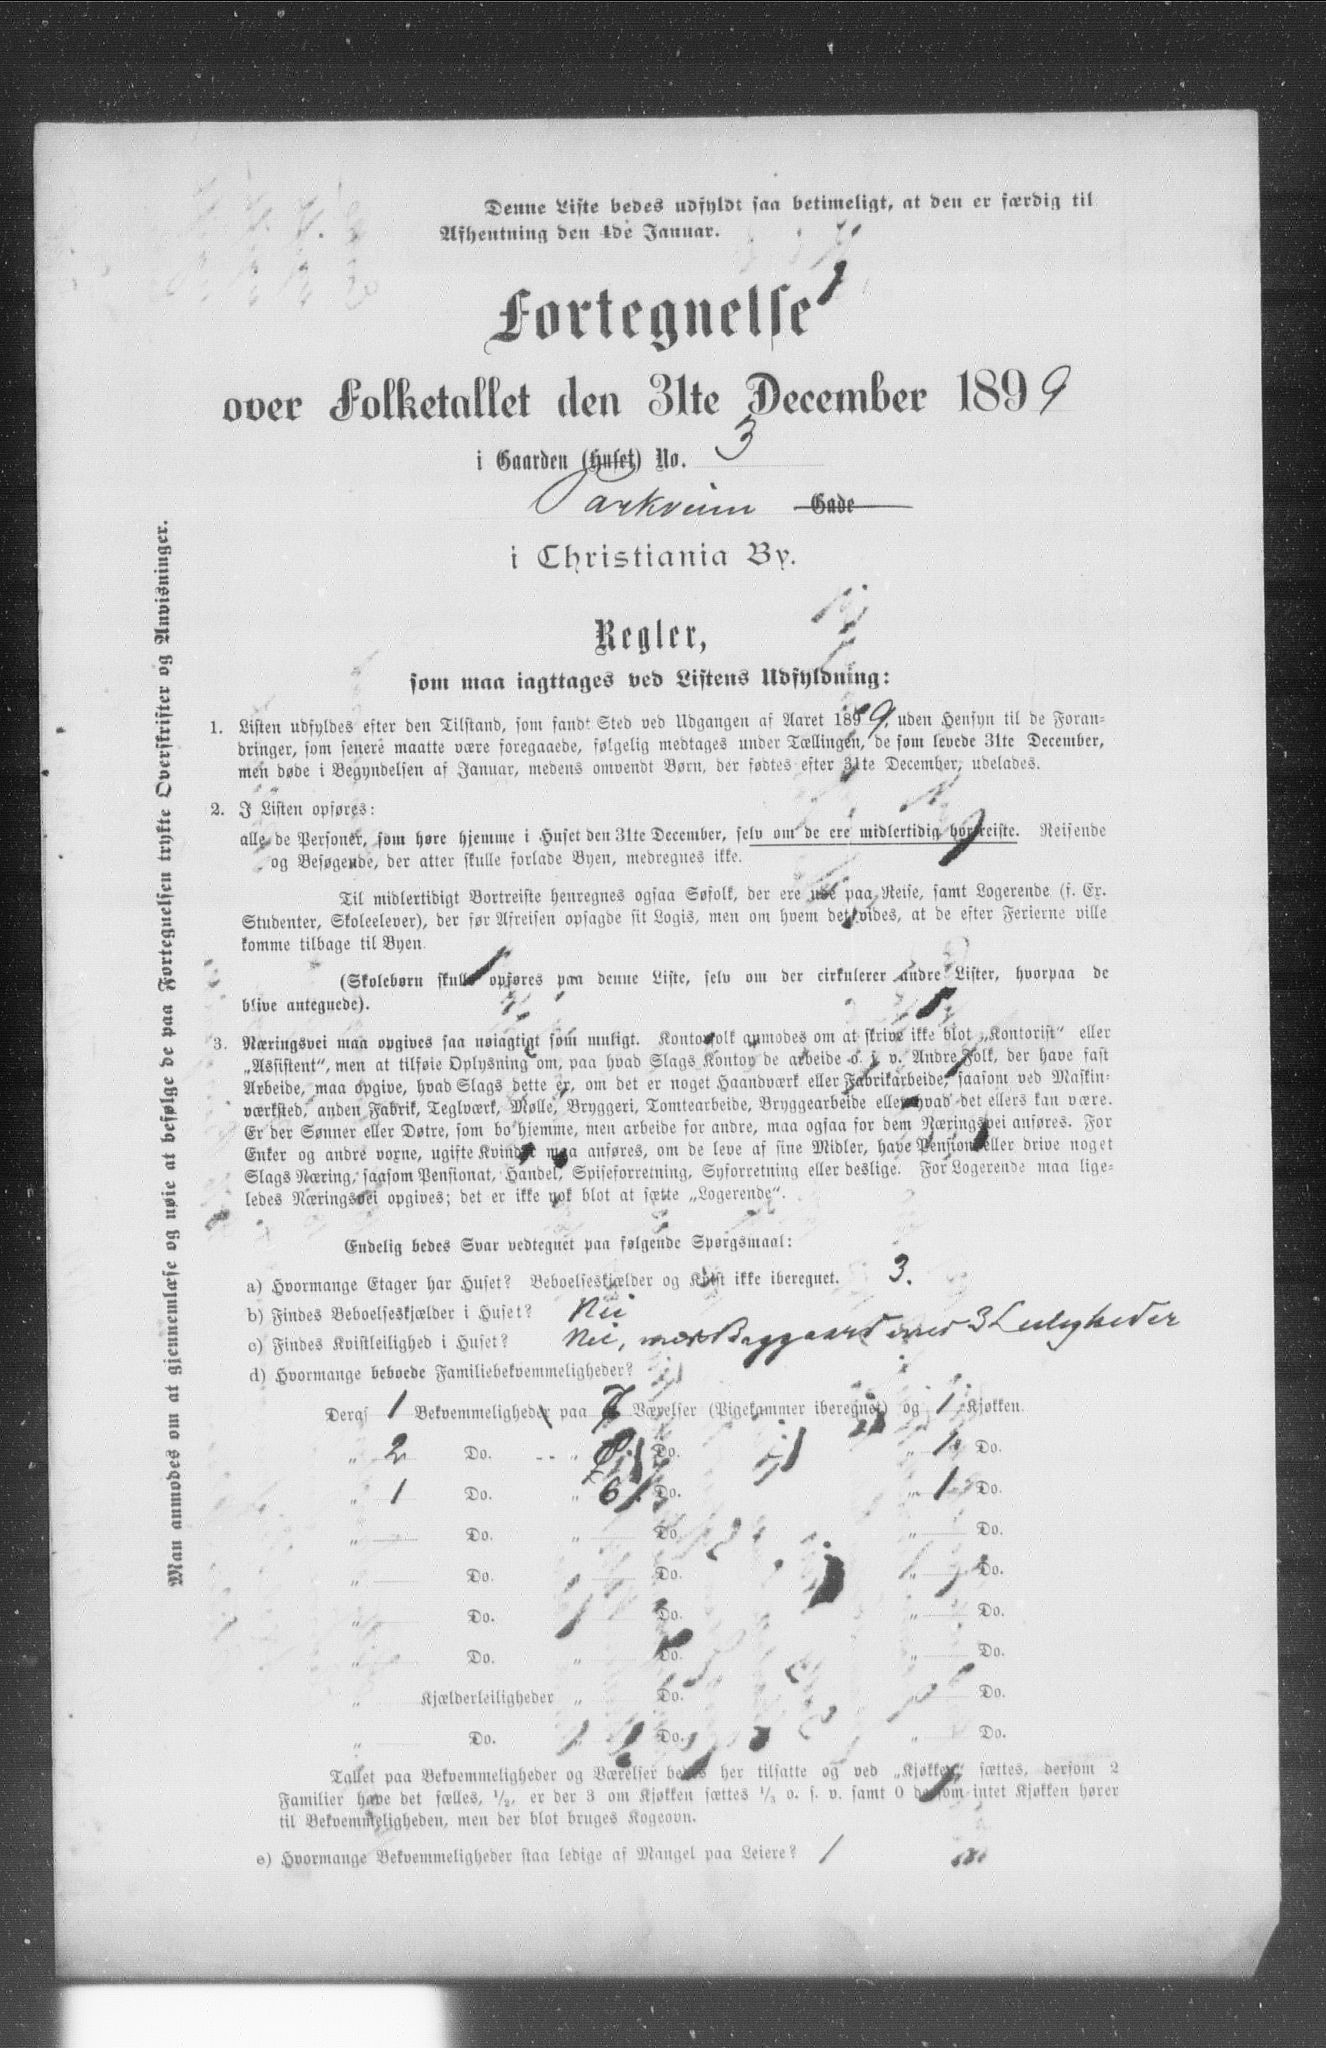 Denne Liste bedes udfyldt saa betimeligt, at den er færdig til
Afhentning den 4de Januar.
Fortegnelse
over Folketallet den 31te December 1899
i Gaarden (Huset) No. 3
Parkveien Gade
i Christiania By.
Regler,
som maa iagttages ved Listens Udfyldning:
1. Listen udfyldes efter den Tilstand, som fandt Sted ved Udgangen af Aaret 1899, uden Hensyn til de Foran-
dringer, som senere maatte være foregaaede, følgelig medtages under Tællingen, de som levede 31te December,
men døde i Begyndelsen af Januar, medens omvendt Børn, der fødtes efter 31te December, udelades.
2. I Listen opføres:
alle de Personer, som høre hjemme i Huset den 31te December, selv om de ere midlertidig bortreiste. Reisende
og Besøgende, der atter skulle forlade Byen, medregnes ikke.
Til midlertidigt Bortreiste henregnes ogsaa Søfolk, der ere ude paa Reise, samt Logerende (f. Ex.
Studenter, Skoleelever), der før Afreisen opsagde sit Logis, men om hvem det vides, at de efter Ferierne ville
komme tilbage til Byen.
(Skolebørn skulle opføres paa denne Liste, selv om der cirkulerer andre Lister, hvorpaa de
blive antegnede).
3. Næringsvei maa opgives saa nøiagtigt som muligt. Kontorfolk anmodes om at skrive ikke blot „Kontorist“ eller
„Assistent“, men at tilføie Oplysning om, paa hvad Slags Kontor de arbeide o. s. v. Andre Folk, der have fast
Arbeide, maa opgive, hvad Slags dette er, om det er noget Haandværk eller Fabrikarbeide, saasom ved Maskin-
værksted, anden Fabrik, Teglværk, Mølle, Bryggeri, Tomtearbeide, Bryggearbeide eller hvad det ellers kan være.
Er der Sønner eller Døtre, som bo hjemme, men arbeide for andre, maa ogsaa for dem Næringsvei anføres. For
Enker og andre voxne, ugifte Kvinder maa anføres, om de leve af sine Midler, have Pension eller drive noget
Slags Næring, saasom Pensionat, Handel, Spiseforretning, Syforretning eller deslige. For Logerende maa lige-
ledes Næringsvei opgives; det er ikke nok blot at sætte „Logerende“.
Endelig bedes Svar vedtegnet paa følgende Spørgsmaal:
a) Hvormange Etager har Huset? Beboelseskjælder og Kvist ikke iberegnet. 3.
b) Findes Beboelseskjælder i Huset? Nei
c) Findes Kvistleilighed i Huset? Nei, med Baggaard 3 Leiligheder
d) Hvormange beboede Familiebekvemmeligheder?
Deraf 1 Bekvemmeligheder paa 7 Værelser (Pigekammer iberegnet) og 1 Kjøkken.
„ 2 Do. „ Do. „ 1 Do.
„ 1 Do. „ 6 Do. „ 1 Do.
„ Do. „ Do. „ Do.
„ Do. „ Do. „ Do.
„ Do. „ Do. „ Do.
„ Do. „ Do. „ Do.
„ Kjælderleiligheder „ Do. „ Do.
„ Do. „ Do. „ Do.
Tallet paa Bekvemmeligheder og Værelser bedes her tilsatte og ved „Kjøkken“ sættes, dersom 2
Familier have det fælles, 1/2, er der 3 om Kjøkken sættes 1/3 o. s. v. samt 0 dersom intet Kjøkken hører
til Bekvemmeligheden, men der blot bruges Kogeovn.
e) Hvormange Bekvemmeligheder staa ledige af Mangel paa Leiere? 1
Man anmodes om at gjennemlæse og nøie at befølge de paa Fortegnelsen trykte Overskrifter og Anvisninger.